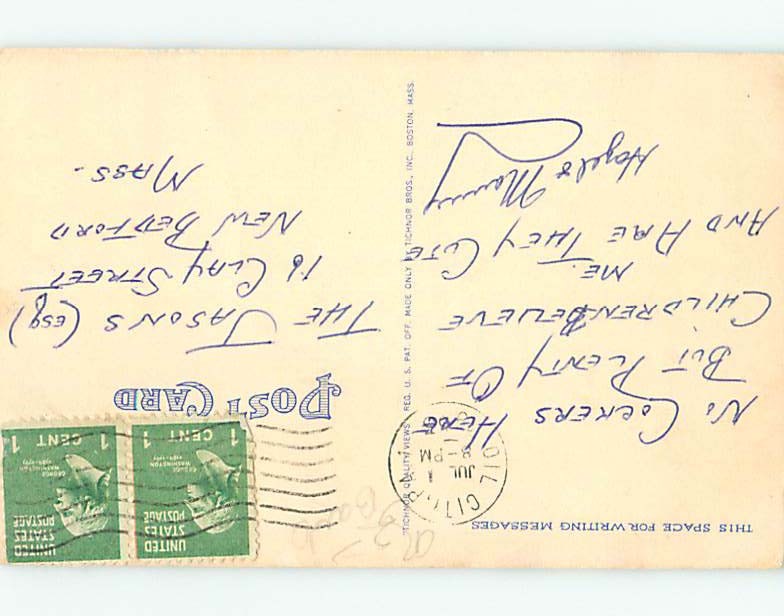 THIS SPACE FOR WRITING MESSAGES
No COKERS HERE
BUT PLENTY OF
CHILDREN BELIEVE
ME.
AND ARE THEY CUTE
Hazel &
TICHNOR QUALITY VIEWS REG. U. S. PAT. OFF. MADE ONLY BY TICHNOR BROS., INC. BOSTON, MASS.
OIL CITY
JUL
8-PM
POST CARD
UNITED
STATES
POSTAGE
GEORGE
WASHINGTON
1789-1797
1 CENT 1
UNITED
STATES
POSTAGE
GEORGE
WASHINGTON
1789-1797
1 CENT 1
THE JASONS (ESQ)
16 CLAY STREET
NEW BEDFORD
MASS.